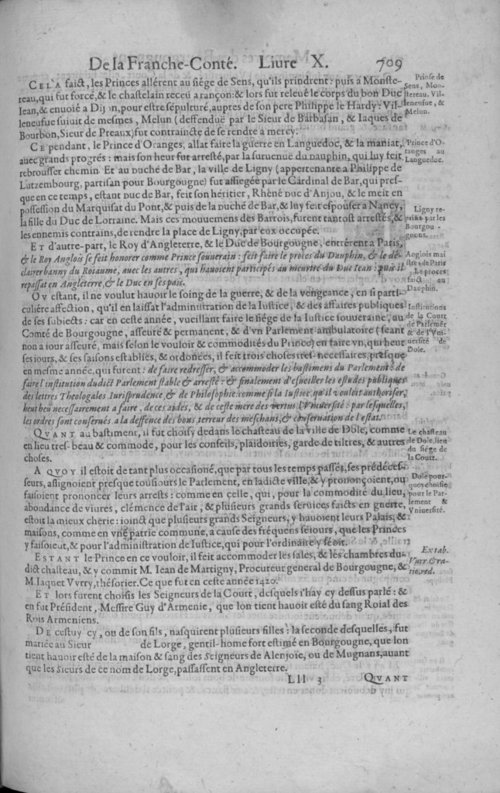 De la Franche-Conté. Liure X. 709
CELA faict, les Princes allérent au siége de Sens, qu'ils prindrent: puis à Monste-
reau, qui fut forcé, & le chastelain receu a rançon: & lors fut releué le corps du bon Duc
Iean, & enuoié a Dijon, pour estre sépulturé, aupres de son pere Philippe le Hardy: Vil-
leneufue suiuit de mesmes, Melun (deffendué par le Sieur de Barbasan, & Iaques de
Bourbon, Sieur de Preaux) fut contraincte de se rendre a mercy:
Prinse de
Sens, Mon-
stereau. Vil-
leneufue, &
Melun.
CE pendant, le Prince d'Oranges, allat faire la guerre en Languedoc, & la maniat,
auec grands progrés: mais son heur fut arresté, par la suruenue du dauphin, qui luy feit
rebrousser chemin. Et au duché de Bar, la ville de Ligny (appertenante a Philippe de
Lutzembourg, partisan pour Bourgougne) fut assiegée par le Cardinal de Bar, qui pres-
que en ce temps, estant duc de Bar, feit son héritier, Rhéné duc d'Anjou, & le meit en
possession du Marquisat du Pont, & puis de la duché de Bar, & luy feit espouser a Nancy,
la fille du Duc de Lorraine. Mais ces mouuemens des Barrois, furent tantost arrestés, &
les ennemis contrains, de rendre la place de Ligny, par eux occupée.
Prince d'O-
ranges au
Languedoc.
Ligny re-
mise par les
Bourgou-
gnons.
ET d'autre-part, le Roy d'Angleterre, & le Duc de Bourgougne, entrérent a Paris,
& le Roy Anglois se feit honorer comme Prince souuerain: feit faire le proces du Dauphin, & le dé-
clairer banny du Roiaume, auec les autres, qui hauoient participés au meurtre du Duc Iean: puis il
repassat en Angleterre, & le Duc en ses païs.
Anglois mai
stre de Paris
Le proces
faict au
Dauphin.
OV estant, il ne voulut hauoir le soing de la guerre, & de la vengeance, en si parti-
culiére affection, qu'il en laissat l'administration de la Iustice, & des affaires publiques
de ses subiects: car en ceste année, veuillant faire le siége de sa Iustice souueraine, au
Comté de Bourgougne, asseuré & permanent, & d'vn Parlement ambulatoire (seant
non a iour asseuré, mais selon le vouloir & commodités du Prince) en faire vn, qui heut
ses iours, & ses saisons establiés, & ordonées, il feit trois choses tres-necessaires, presque
en mesme année, qui furent: de faire redresser, & accommoder les bastimens du Parlement: de
faire l'institution dudict Parlement stable & arresté: & finalement d'esueiller les estudes publiques
des lettres Theologales Iurisprudence, & de Philosophie comme si la Iustice qu'il vouloit authoriser,
heut heu necessairement a faire, de ces aides, & de ceste mere des vertus l'Vniuersité: par lesquelles,
les ordres sont conserués a la deffence des bons, terreur des meschans, & conseruation de l'estat.
Institutions
de la Court
de Parlemēt
& de l'Vni-
uersité de
Dole.
QVANT au bastiment, il fut choisy dedans le chasteau de la ville de Dole, comme
en lieu tres-beau & commode, pour les conseils, plaidoiries, garde de tiltres, & autres
choses.
Le chasteau
de Dole, lieu
du siége de
la Court.
A QVOY il estoit de tant plus occasioné, que par tous les temps passés, ses prédéces-
seurs, assignoient presque tousiours le Parlement, en ladicte ville, & y prononçoient, ou
faisoient prononcer leurs arrests: comme en celle, qui, pour la commodité du lieu,
abondance de viures, clémence de l'air, & plusieurs grands seruices faicts en guerre,
estoit la mieux chérie: ioinct que plusieurs grands Seigneurs, y hauoient leurs Palais, &
maisons, comme en vne patrie commune, a cause des fréquens séiours, que les Princes
y faisoient, & pour l'administration de Iustice, qui pour l'ordinaire y séoit.
Dole pour-
quoy choisie,
pour le Par-
lement &
Vniuersité.
ESTANT le Prince en ce vouloir, il feit accommoder les sales, & les chambres du-
dict chasteau, & y commit M. Iean de Martigny, Procureur general de Bourgougne, &
M. Iaquet Vvrry, thésorier. Ce que fut en ceste année 1420.
Ex tab.
Vurry æra-
rio red.
ET lors furent choisis les Seigneurs de la Court, desquels i'hay cy dessus parlé: &
en fut Président, Messire Guy d'Armenie, que lon tient hauoit esté du sang Roial des
Rois Armeniens.
DE cestuy cy, ou de son fils, nasquirent plusieurs filles: la seconde desquelles, fut
mariée au Sieur de Lorge, gentil-home fort estimé en Bourgougne, que lon
tient hauoir esté de la maison & sang des Seigneurs de Alenjoie, ou de Mugnans, auant
que les Sieurs de ce nom de Lorge, passassent en Angleterre.
Lll 3 QVANT